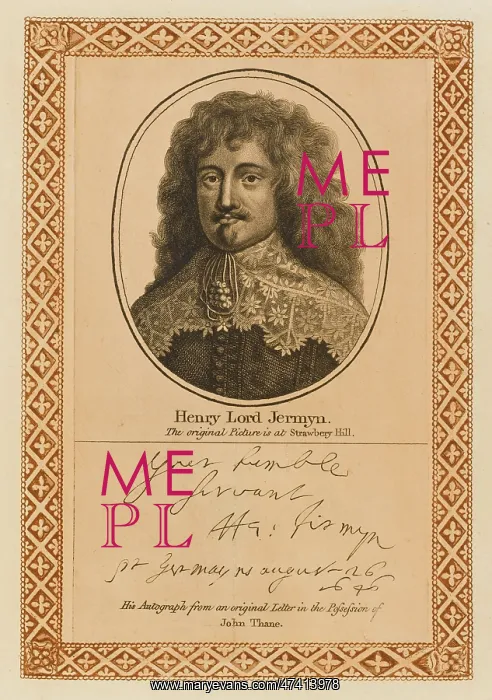 ME
PL
Henry Lord Jermyn.
The original Picture is at Strawbery Hill.
ME
PL
Your humble
servant
He: Jermyn
st Germayns august-26
1646
His Autograph from an original Letter in the Possession of
John Thane.
www.maryevans.com/47419978